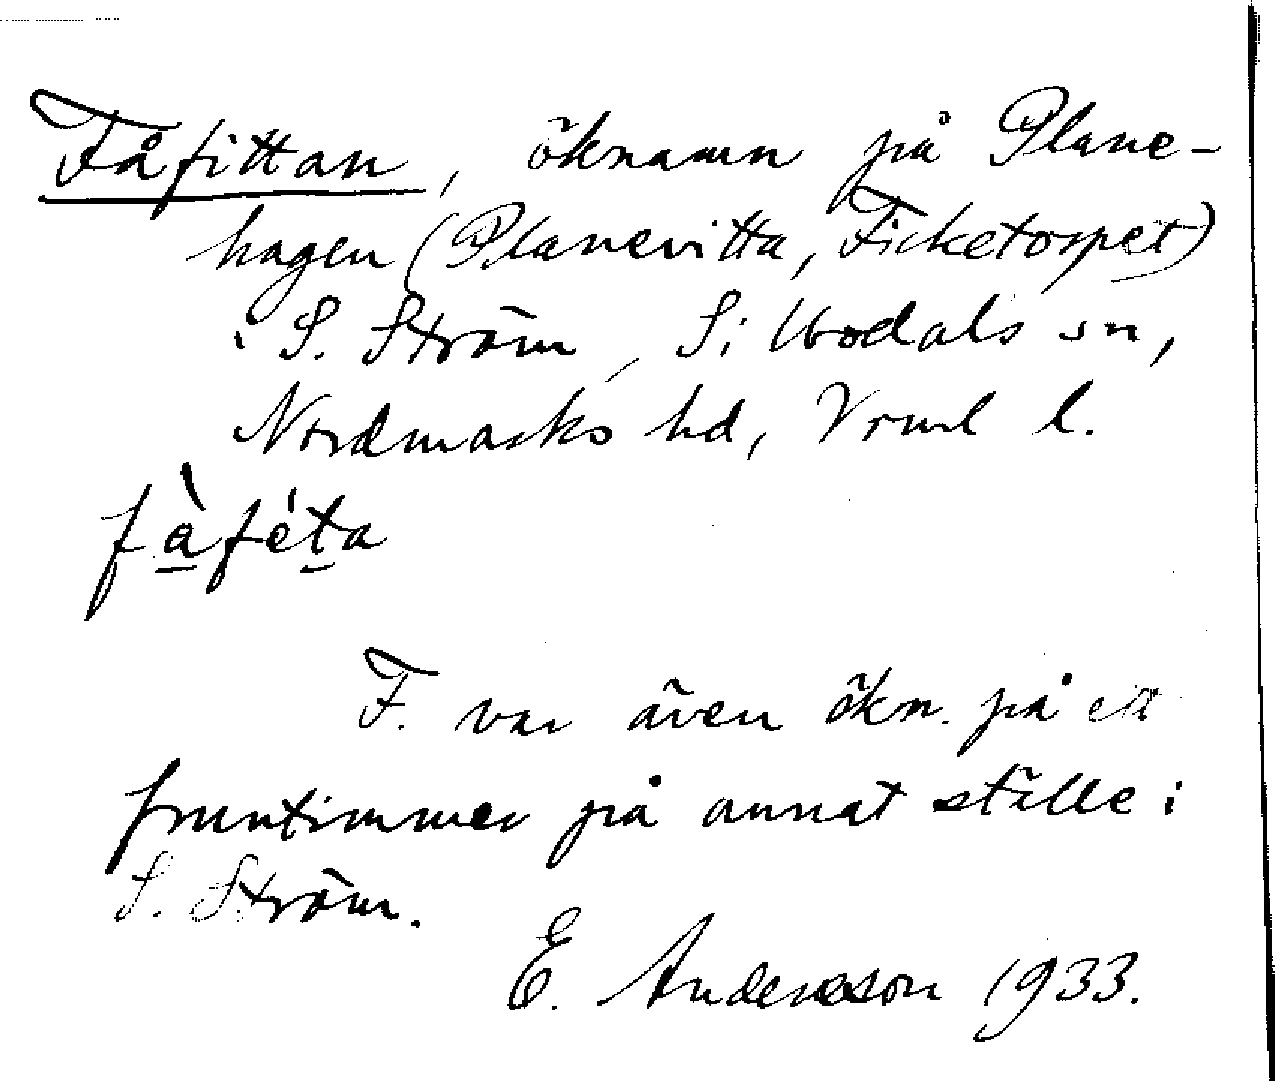 Fåfittan, öknamn på Plane-
hagen (Planevitta, Ficketorpet)
i S. Ström, Sillbodals sn,
Nordmarks hd, Vrml l.
fàféta
F. var även ökn. på ett
fruntimmer på annat ställe i
S. Ström.
E. Andersson 1933.